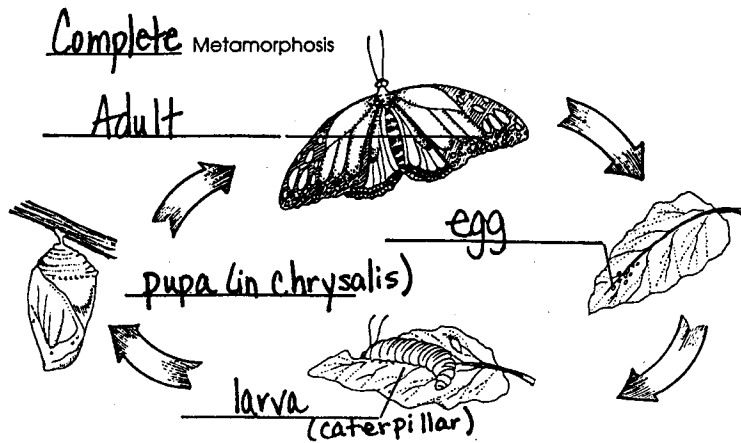 Complete Metamorphosis
Adult
egg
pupa (in chrysalis)
larva
(caterpillar)